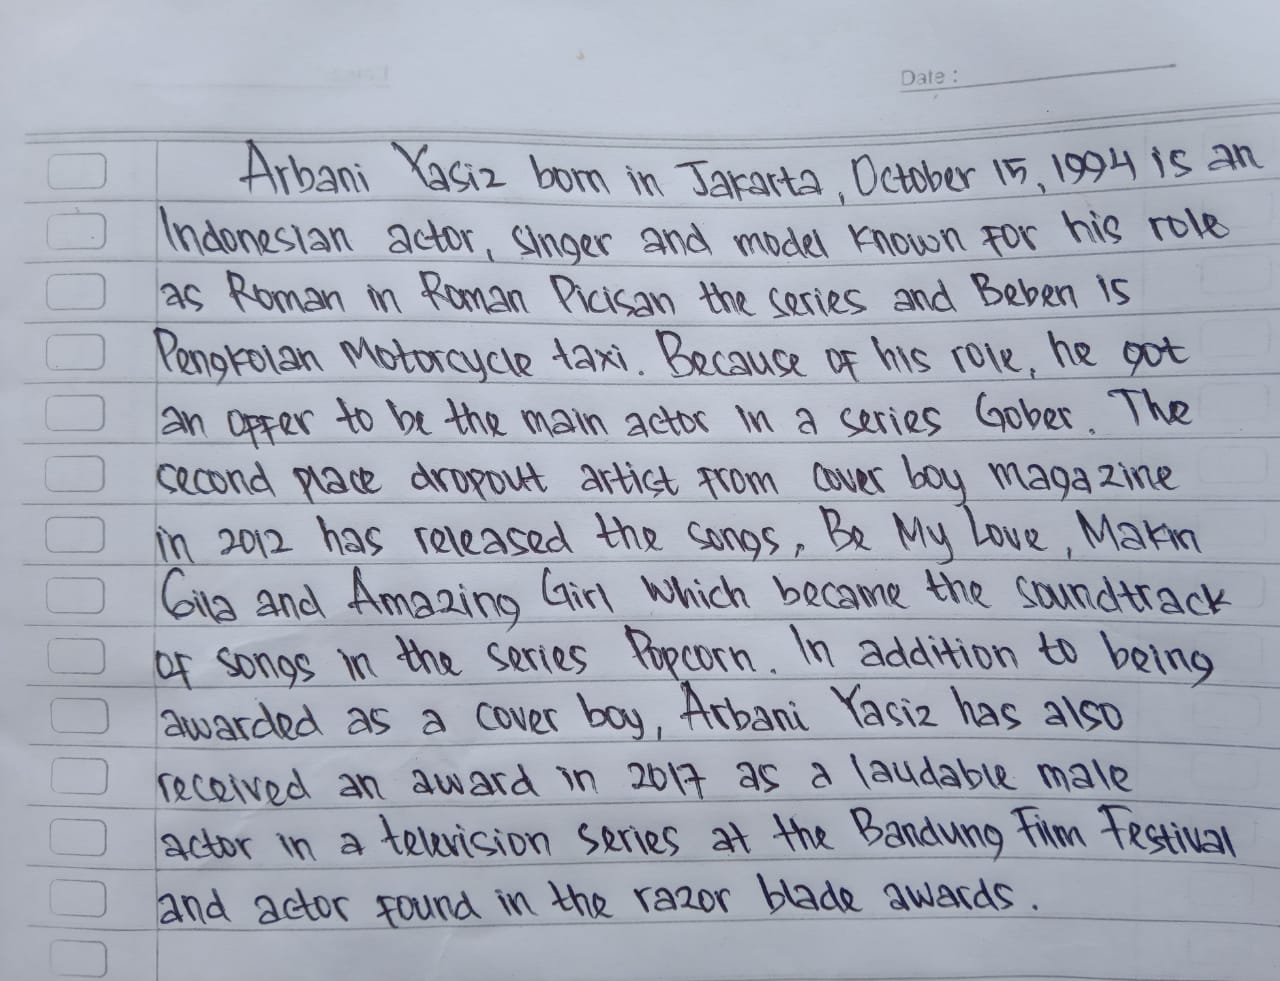 Date :
Arbani Yasiz born in Jakarta, October 15, 1994 is an
Indonesian actor, singer and model known for his role
as Roman in Roman Picisan the series and Beben is
Pengkolan Motorcycle taxi. Because of his role, he got
an offer to be the main actor in a series Gober. The
second place dropout artist from cover boy magazine
in 2012 has released the songs, Be My Love, Makin
Gila and Amazing Girl which became the soundtrack
of songs in the series Popcorn. In addition to being
awarded as a cover boy, Arbani Yasiz has also
received an award in 2017 as a laudable male
actor in a television series at the Bandung Film Festival
and actor found in the razor blade awards.